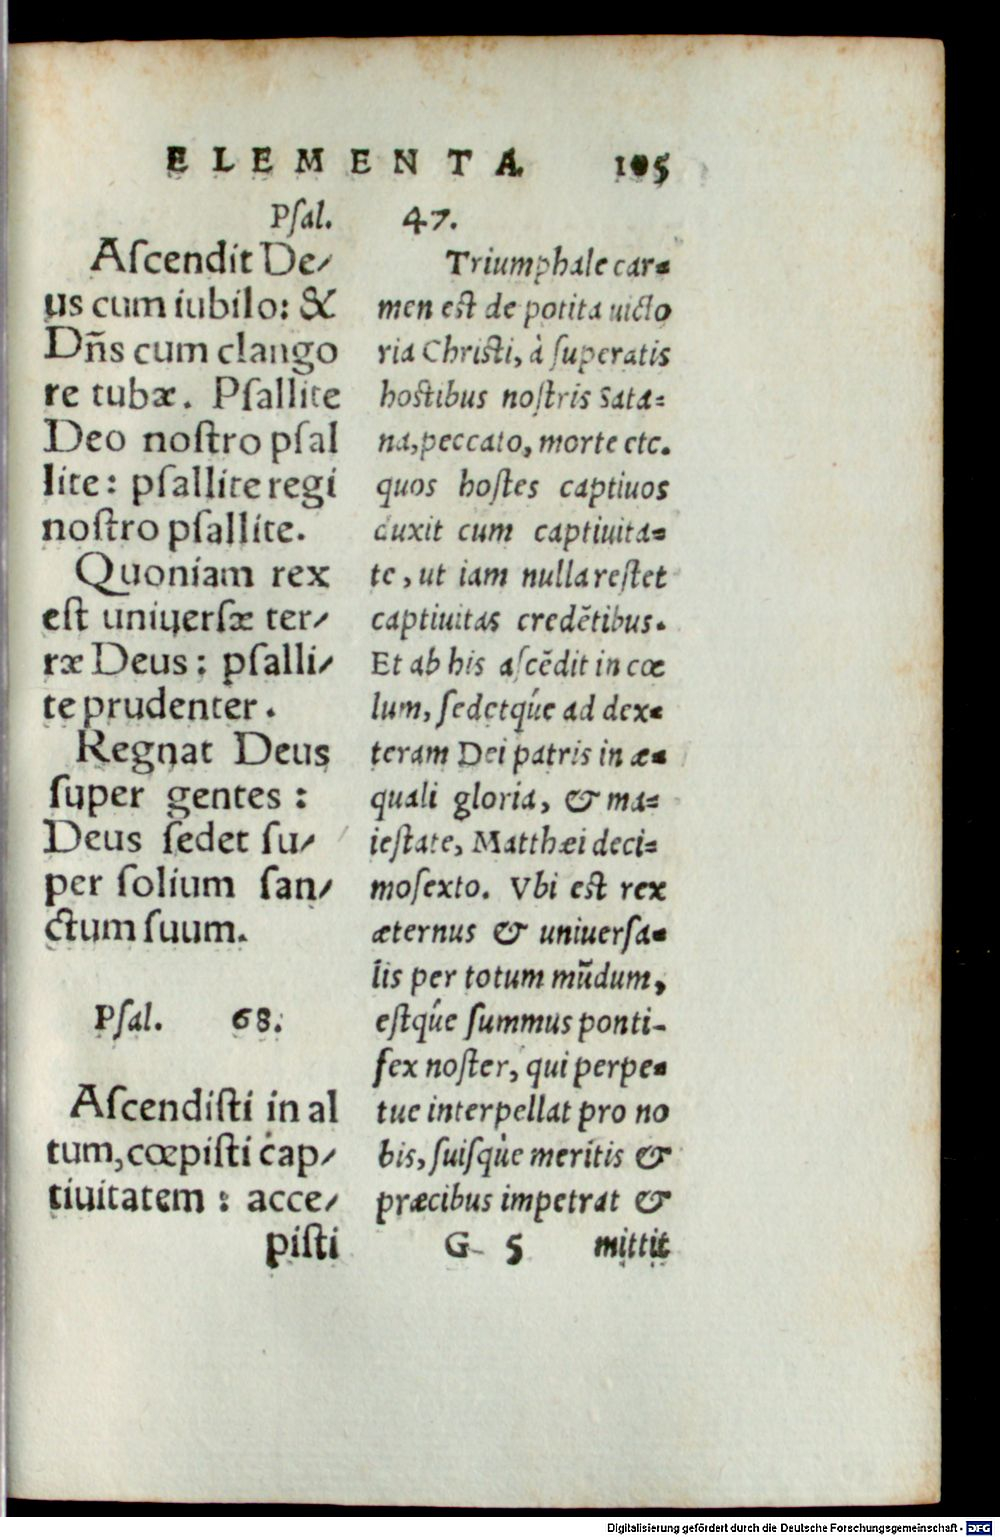 ELEMENTA 105
Psal. 47.
Aſcendit De/
us cum iubilo: &
Dñs cum clango
re tubæ. Pſallite
Deo noſtro pſal
lite: pſallite regi
noſtro pſallite.
Quoniam rex
eſt uniuerſæ ter/
ræ Deus: pſalli/
te prudenter.
Regnat Deus
ſuper gentes:
Deus ſedet ſu/
per ſolium ſan/
ctum ſuum.
Pſal. 68.
Aſcendiſti in al
tum, cœpiſti cap/
tiuitatem: acce/
piſti
Triumphale car=
men eſt de potita uicto
ria Chriſti, à ſuperatis
hoſtibus noſtris Sata=
na, peccato, morte etc.
quos hoſtes captiuos
duxit cum captiuita=
te, ut iam nulla reſtet
captiuitas credẽtibus.
Et ab his aſcẽdit in cœ
lum, ſedetq́ue ad dex=
teram Dei patris in æ=
quali gloria, & ma=
ieſtate, Matthæi deci=
moſexto. Vbi eſt rex
æternus & uniuerſa=
lis per totum mũdum,
eſtq́ue ſummus ponti-
fex noſter, qui perpe=
tue interpellat pro no
bis, ſuiſq́ue meritis &
præcibus impetrat &
G 5 mittit
Digitalisierung gefördert durch die Deutsche Forschungsgemeinschaft - DFG